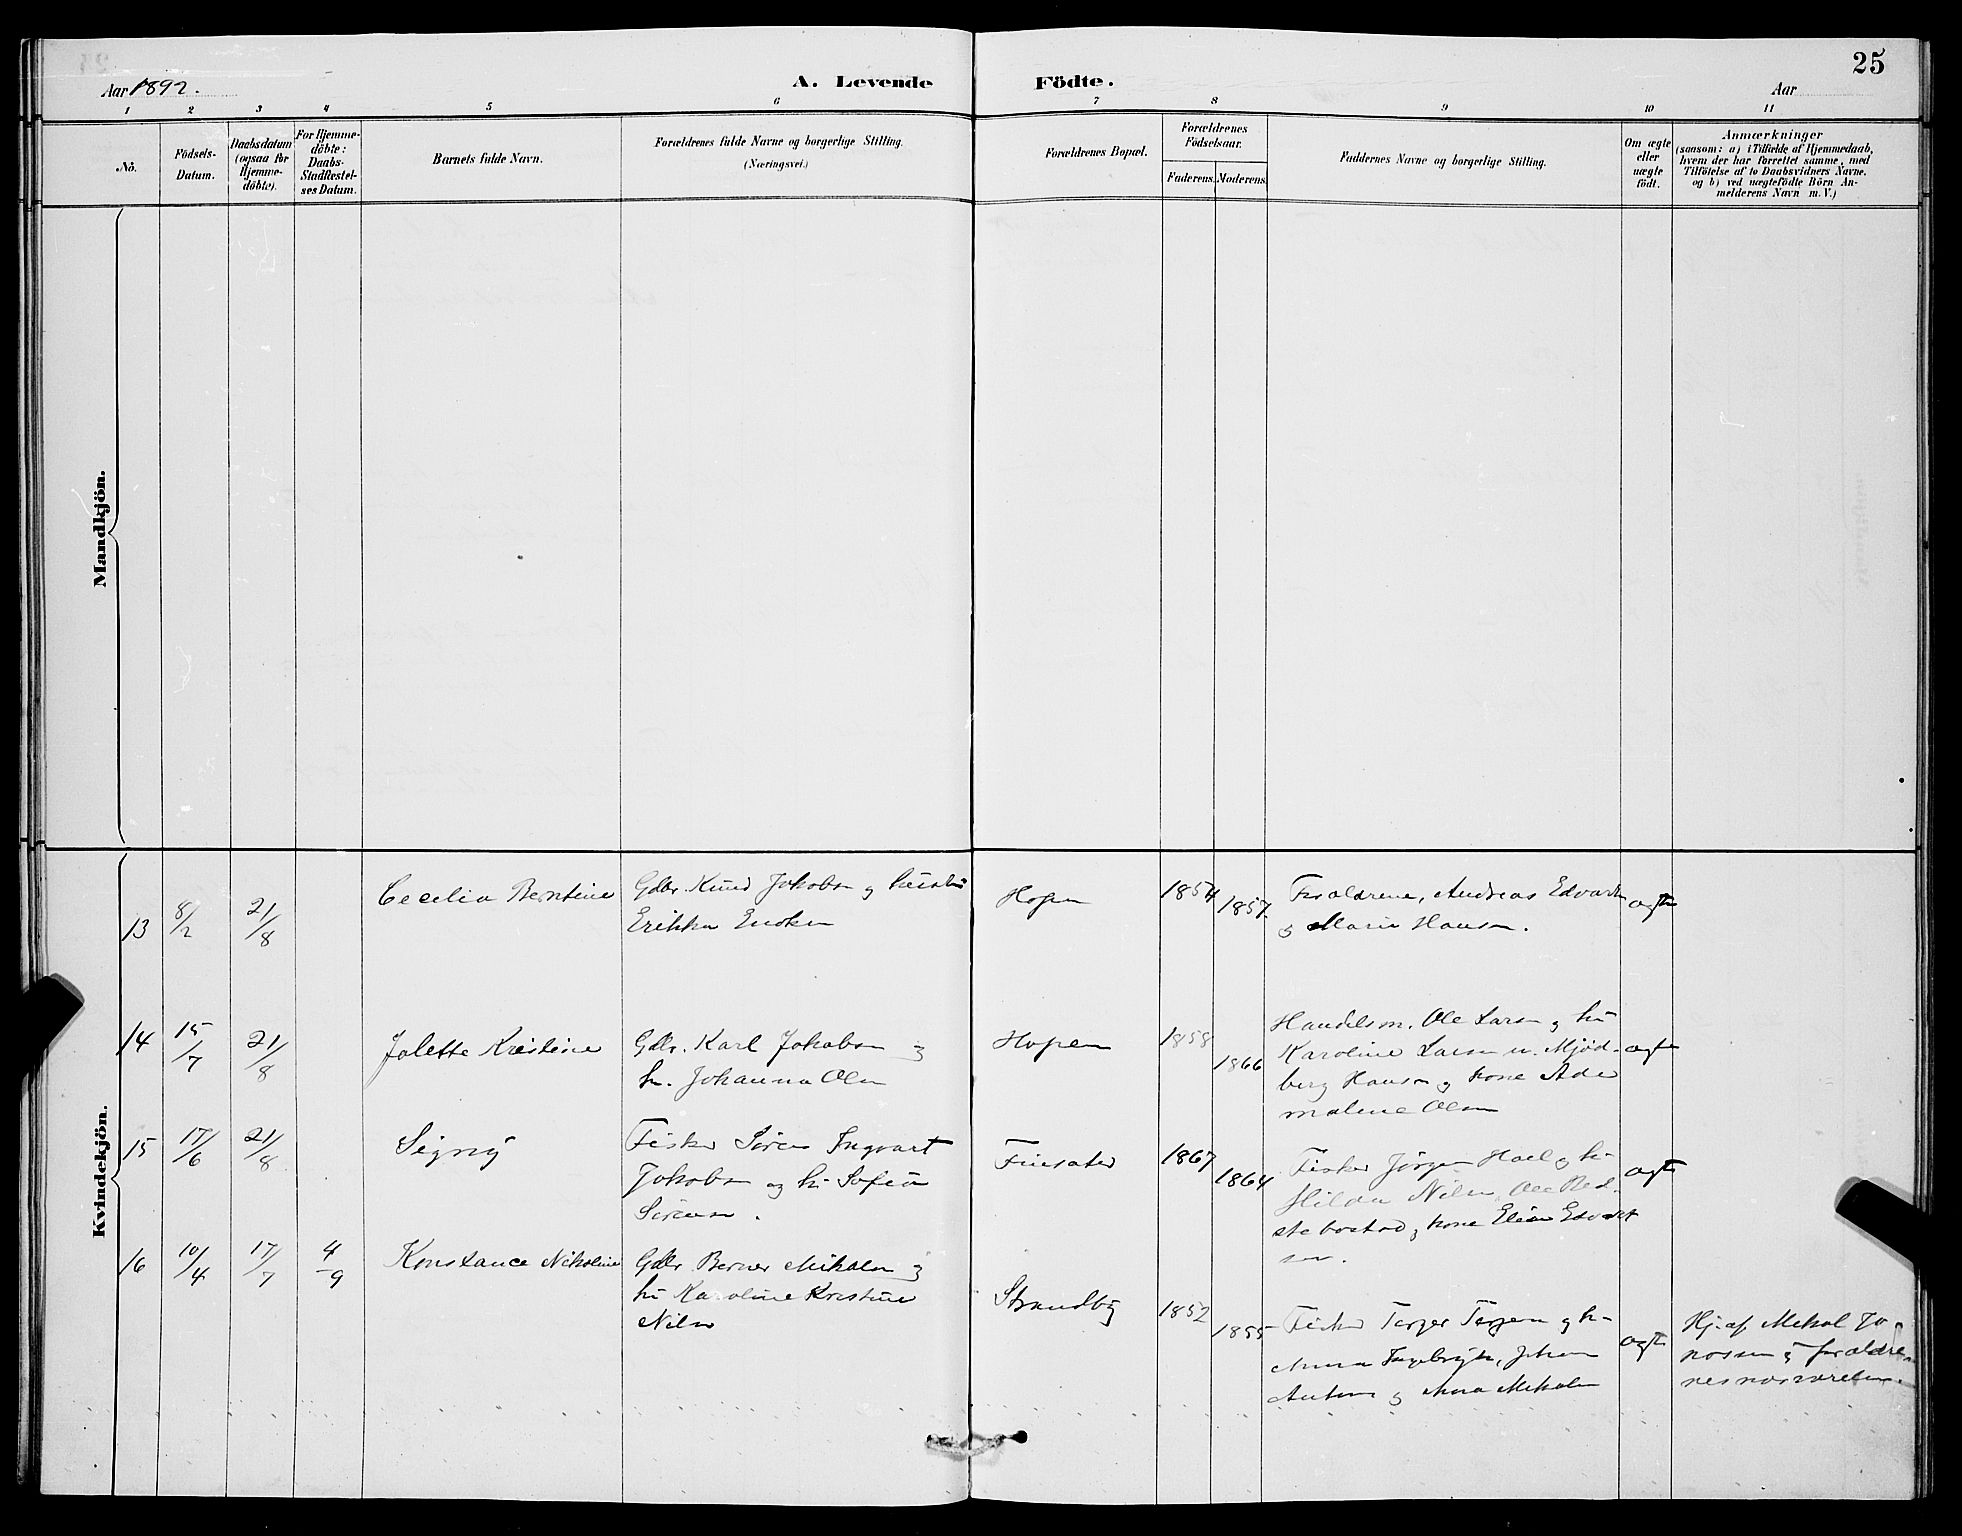 25
Aar 1892.
A. Levende Födte.
Aar
1 2 3 4 5 6 7 8 9 10 11
No.
Födsels-
Datum.
Daabsdatum
(ogsaa for
Hjemme-
döbte).
For Hjemme-
döbte:
Daabs-
Stadfæstel-
ses Datum.
Barnets fulde Navn.
Forældrenes fulde Navne og borgerlige Stilling.
(Næringsvei.)
Forældrenes Bopæl.
Forældrenes
Födselsaar.
Faderens. Moderens.
Faddernes Navne og borgerlige Stilling.
Om ægte
eller
uægte
födt.
Anmærkninger
(saasom: a) i Tilfælde af Hjemmedaab,
hvem der har forrettet samme, med
Tilföielse af to Daabsvidners Navne.
og b) ved uægtefödte Börn An-
melderens Navn m. V.)
Mandkjön.
Kvindekjön.
13
8/2
21/8
Cecelia Berntine
Gdbr. Knud Jakobsn og hustru
Erikka Enoksn
Hopen
1854
1857
Forældrene, Andreas Edvards
og Marie Hansn.
ægte
14
15/7
21/8
Jolette Kristine
Gdbr. Karl Jakobsn og
h. Johanna Olsn
Hopen
1858
1866
Handelsm. Ole Larsn og hu
Karoline Larsn u. Mjöd-
berg Hansn og kone
malene Olsn
ægte
15
17/6
21/8
Signy
Fisker Sören Ingvart
Jakobsn og hu Sofie
Sörensn.
1867
1864
Fisker Jörgen Hoel og hu
Hilda Nilsn, Ole Red-
og kone Edvart
sn.
ægte
16
10/4
17/7
4/9
Konstance Nikoline
Gdbr. Berner Mikalsn og
hu Karoline Kristine
Nilsn
Strandby
1852
1855
Fisker Torger Torgersn og hu
Anna Ingebrigts, Johan
Antons og Anna Mikalsn
ægte
Hj. af Mikal Jo
nassen og forældre
nes nærværelse.